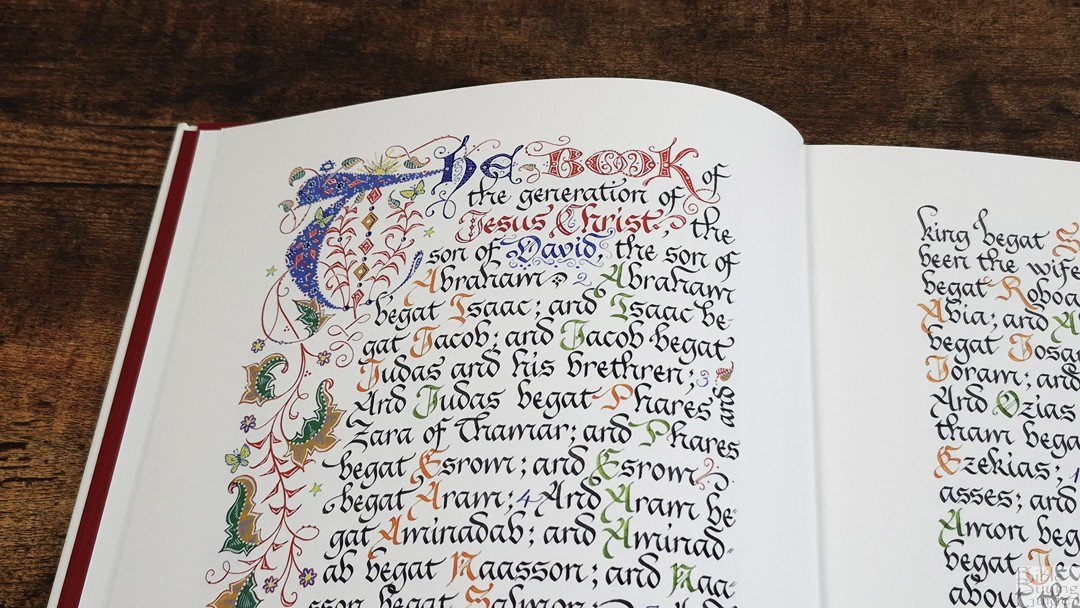 The Book of
the generation of
Jesus Christ, the
son of David, the son of
Abraham 2 Abraham
begat Isaac; and Isaac be-
gat Jacob; and Jacob begat
Judas and his brethren; 3
And Judas begat Phares and
Zara of Thamar; and Phares
begat Esrom; and Esrom
begat Aram; 4 And Aram be-
gat Aminadab; and Aminad-
ab begat Naasson; and Naa-
sson begat Salmon;
king begat S
been the wife
begat Roboa
Abia; and A
begat Josap
Joram; and
And Ozias
tham bega
Ezekias;
asses; and
Amon beg
begat Jec
about the
Bible
Buying
Guide